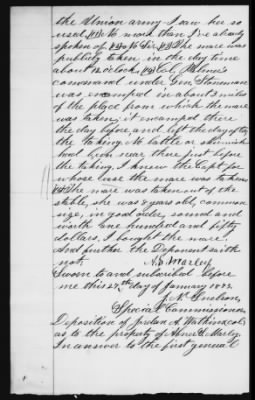 the Union army I saw her so
used. No more than I've already
spoken of. No Sir. The mare was
publicly taken in the day time
about 12 o'clock. Col. Palmer's
command under Gen. Stoneman
was encamped in about 3 miles
of the place from which the mare
was taken; it encamped there
the day before and left the day of
the taking. No battle or skirmish
had been near there just before
the taking. I knew the
whose the mare was taken
The mare was taken out of the
stable, she was 8 years old, common
size, in good order, sound and
worth one hundred and fifty
dollars, I bought the mare.
And further the Deponent saith
not. A. E. Marley
Sworn to and subscribed before
me this 27th day of January 1873.
Special Commissioner
Deposition of Jordan A. Wathins, col,
as to the property of
In answer to the first general